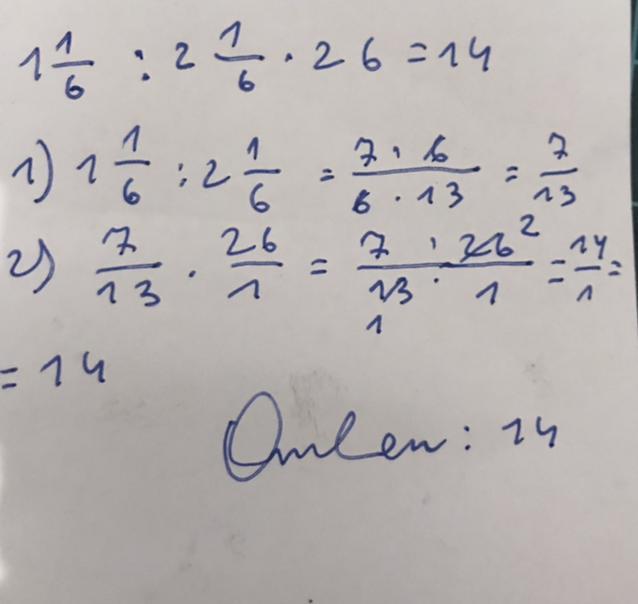 1 1/6 : 2 1/6 · 26 = 14
1) 1 1/6 : 2 1/6 = 7 · 6 / 6 · 13 = 7/13
2) 7/13 · 26/1 = 7 · 26 2 / 13 · 1 = 14/1 =
1
= 14
Ответ: 14